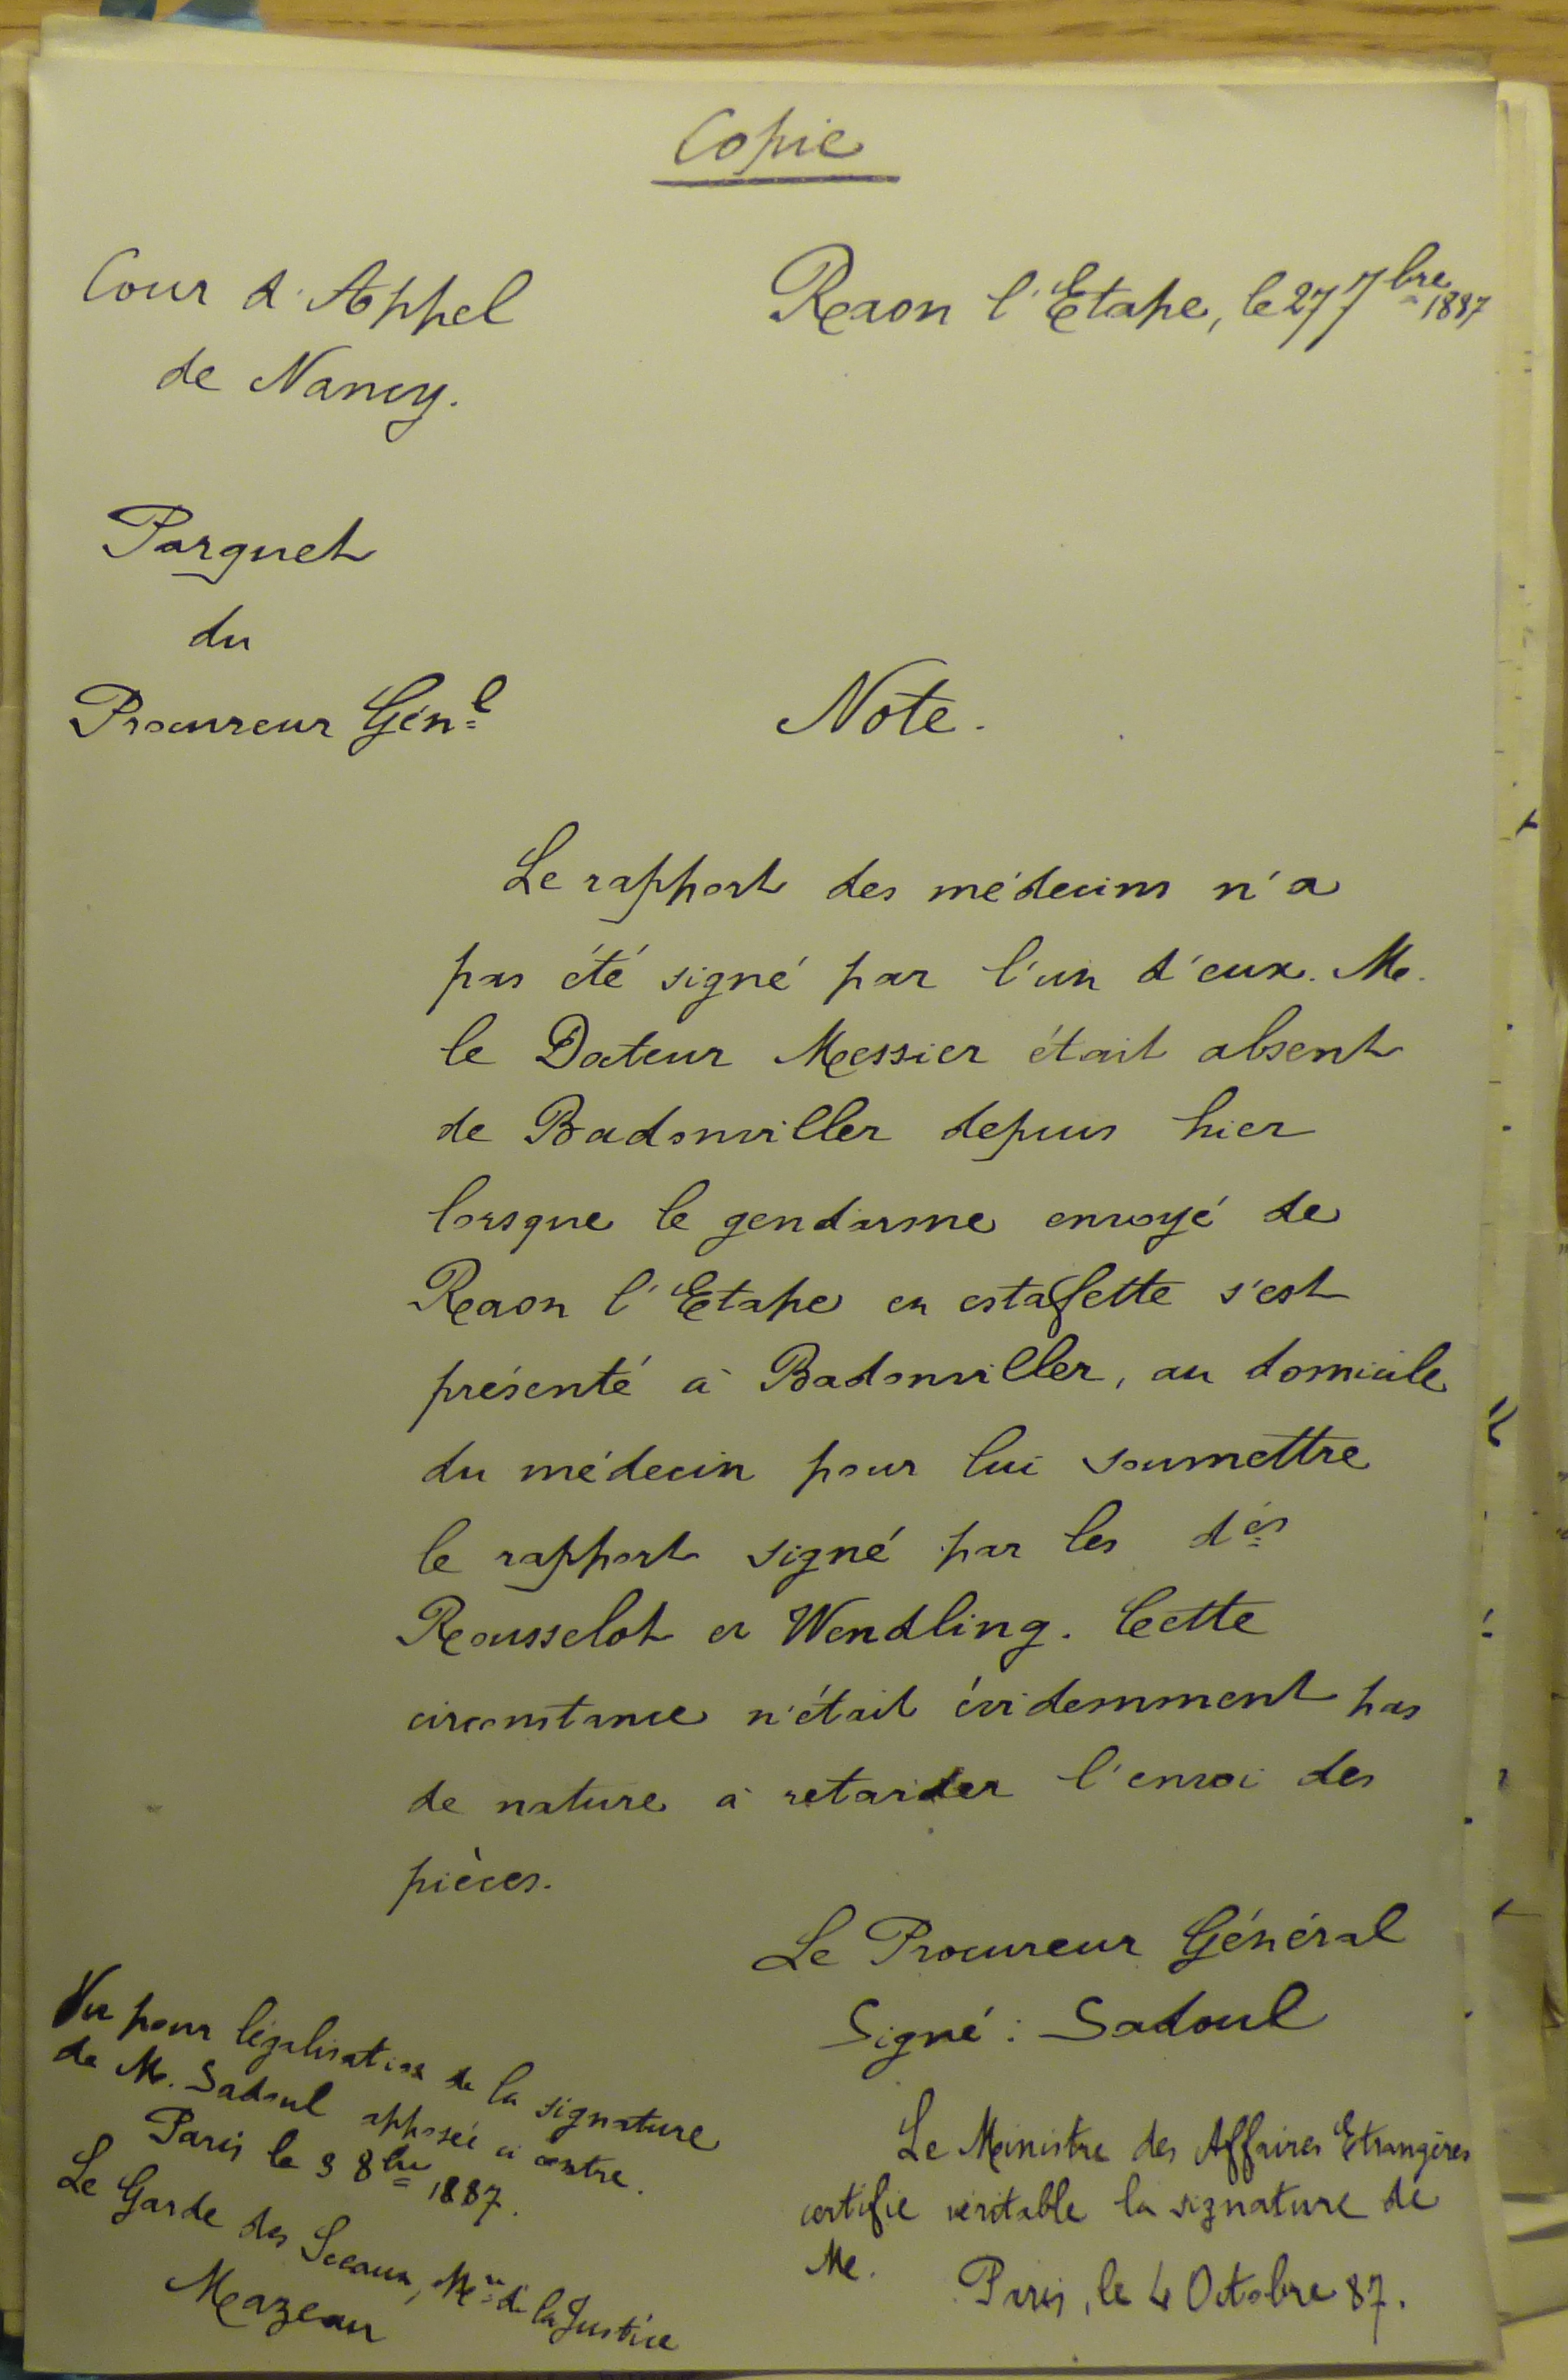 Copie
Cour d'Appel
de Nancy.
Raon l'Etape, le 27 7bre 1887
Parquet
du
Procureur Génl
Note.
Le rapport des médecins n'a
pas été signé par l'un d'eux. M.
le Docteur Messier était absent
de Badonviller depuis hier
lorsque le gendarme envoyé de
Raon l'Etape en estafette s'est
présenté à Badonviller, au domicile
du médecin pour lui soumettre
le rapport signé par les drs
Rousselot et Wendling. Cette
circonstance n'était évidemment pas
de nature à retarder l'envoi des
pièces.
Le Procureur Général
Signé : Sadoul
Vu pour légalisation de la signature
de M. Sadoul apposée ci contre.
Paris le 3 8bre 1887.
Le Garde des Sceaux, Mre de la Justice
Mazeau
Le Ministre des Affaires Etrangères
certifie véritable la signature de
M.
Paris, le 4 Octobre 87.